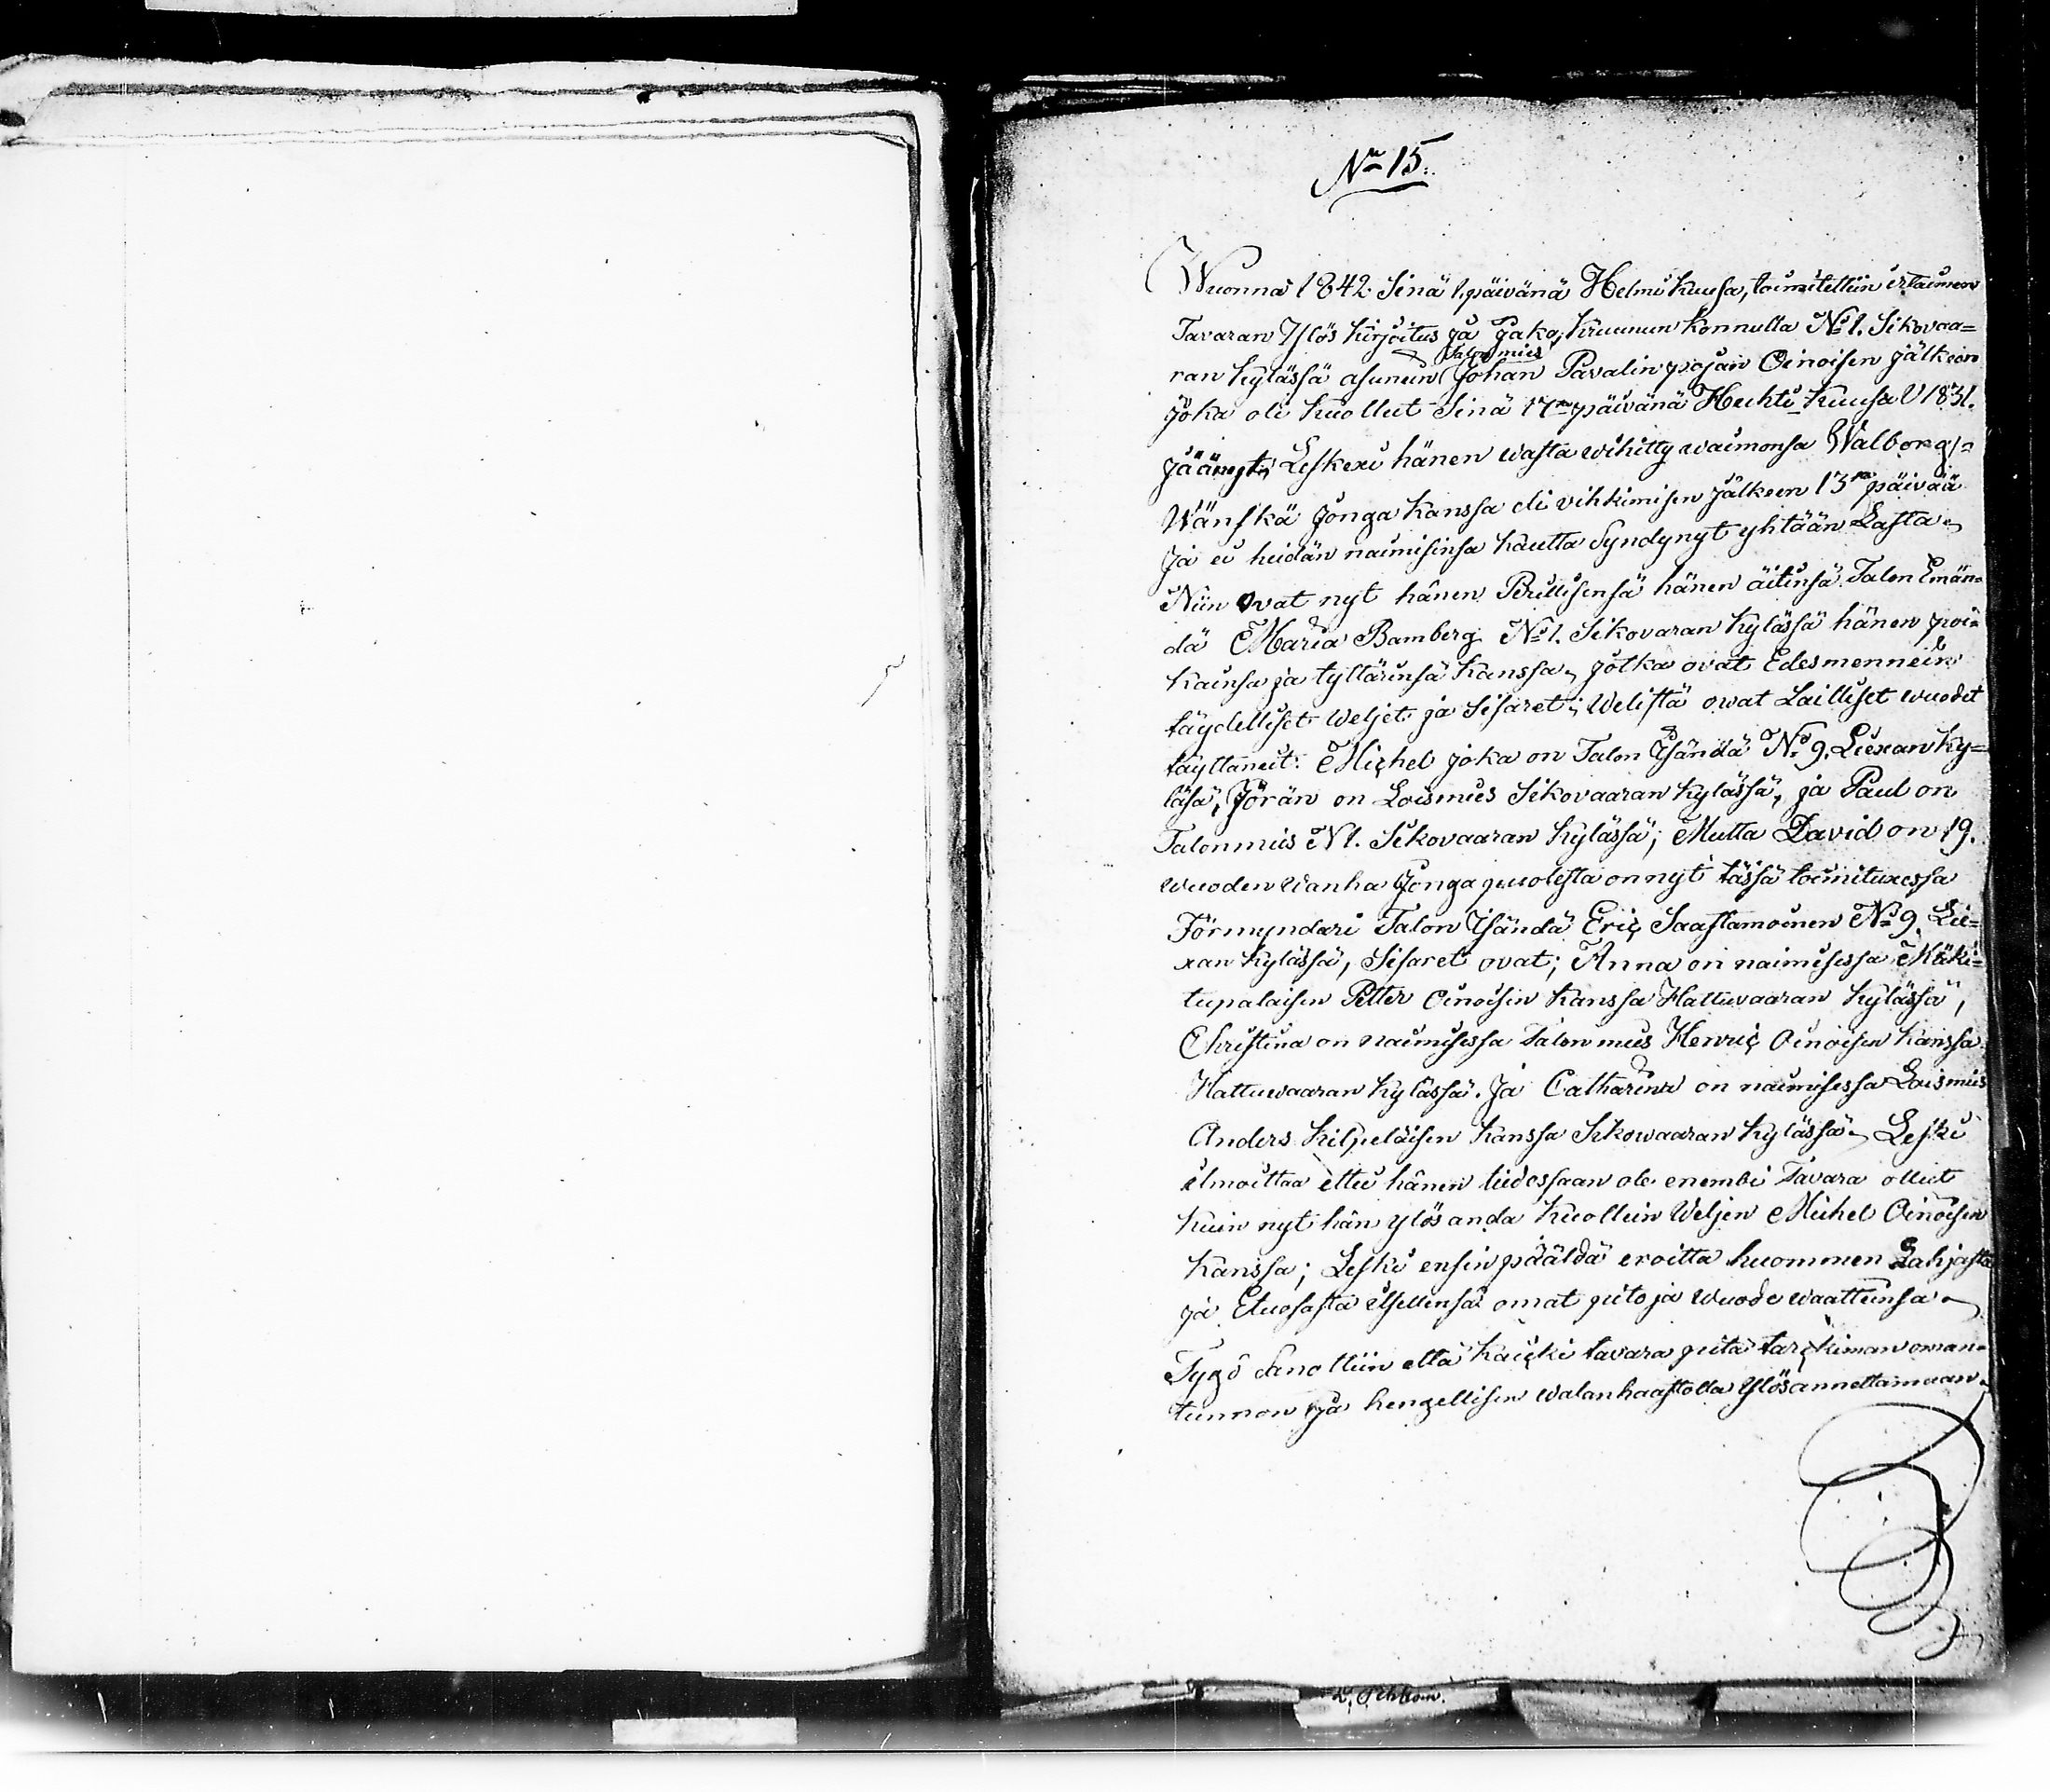 No 15.
Wuonna 1842 Sinä 1 päivänä Helmi kuusa, toimitettiin irtaimen
Tavaran Ylös kirjoitus ja Jako, Kruunun konnulla No 1. Sikovaa=
Talon mies
ran kylässä asunun Johan Pavalin pojan Oinoisen jälkeen
Joka oli kuollut Sinä 17 päivänä Huhti kuusa V 1831.
Jäänyt Leskexi hänen wasta wihitty waimonsa Walborg
Wänskä Jonga kanssa eli vihkimisen jälkeen 13 päivää
Ja ei heidän naimisinsa kautta Syndynyt yhtään Lasta
Niin Ovat nyt hänen Perillisensä hänen äitinsä Talon Emän=
dä Maria Bamberg No 1. Sikovaran kylässä hänen poi=
kainsa ja tyttärinsä kanssa, jotka ovat Edesmennein
täydelliset Weljet ja Sisaret; Welistä owat Lailliset wuodet
täyttäneet: Michel joka on Talon Isändä No 9. Liexan ky=
läsä, Jörän on Loismies Sikovaaran kylässä, ja Paul on
Talonmies N 1. Sikovaaran kylässä; Mutta David on 19.
wuoden wanha Jonga puolesta on nyt tässä toimituxessa
Förmyndari Talon Isändä Eric Saastamoinen No 9. Lie=
xan kylässä, Sisaret ovat; Anna on naimisessa Mäki=
tupalaisen Petter Oinoisen kanssa Hattuvaaran kylässä,
Christina on naimisessa Talon mies Henric Oinoisen kanssa
Hattuwaaran kylässä. Ja Catharina on naimisessa Loismies
Anders Kilpeläisen kanssa Sikowaaran kylässä, Leski
ilmoittaa ettei hänen tiedossaan ole enembi Tavara ollut
kuin nyt hän ylös anda kuollein Weljen Michel Oinoisen
kanssa; Leski ensin päälda eroitta huommen Lahjasta
ja Etuosasta itsellensä omat pito ja wuode waattensa
Tygö Sanottiin että kaicki tavara pitä tarckiman oman=
tunnon ja hengellisen walanhaastolla Ylösannettamaan